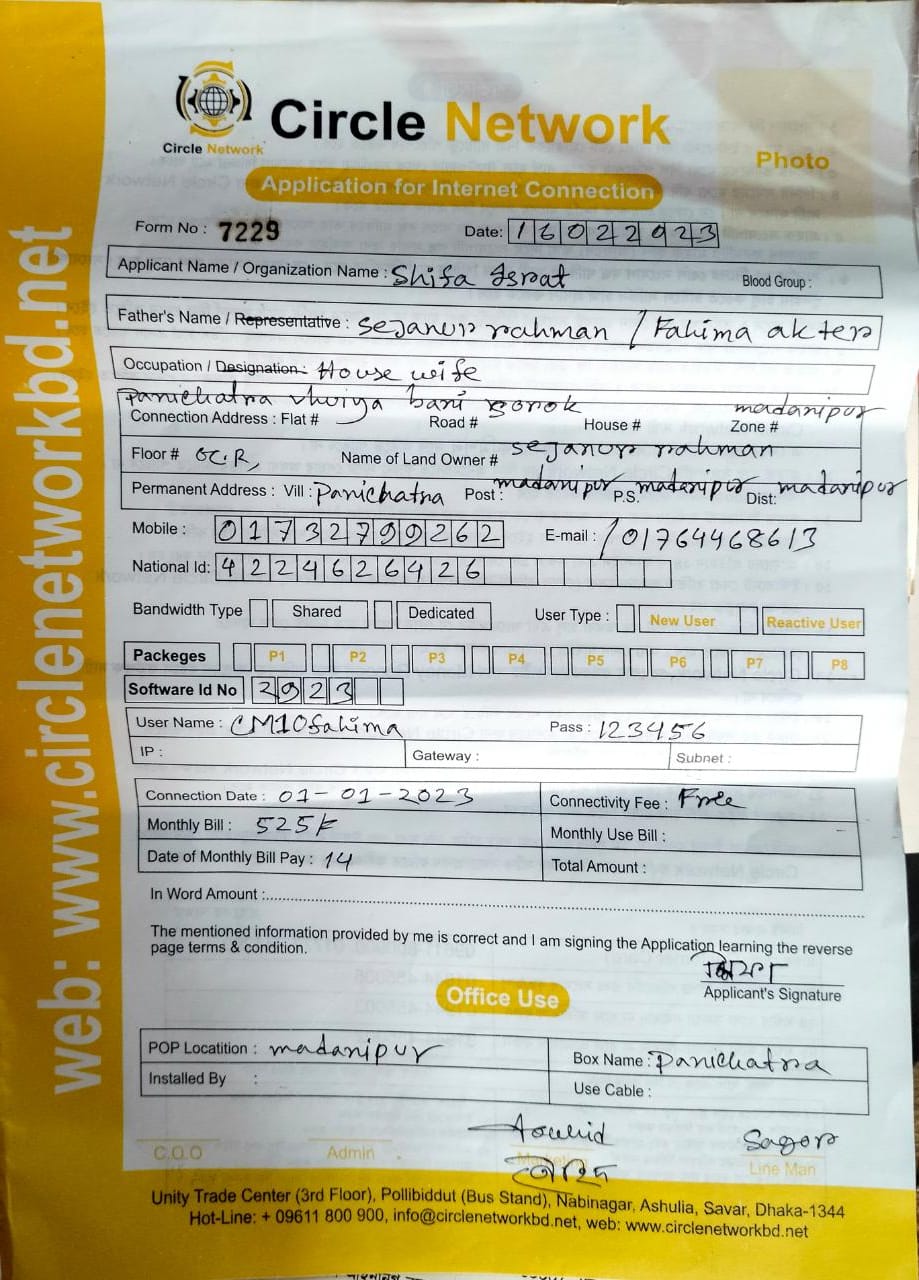 Circle Network
Circle Network
Photo
Application for Internet Connection
Form No : 7229
Date: 16022023
Applicant Name / Organization Name : Shifa Israt Blood Group :
Father's Name / Representative : sejanur rahman / Fahima akter
Occupation / Designation : House wife
Panichatra bari madanipur
Connection Address : Flat # Road # House # Zone #
Floor # G.C.R, Name of Land Owner # sejanur rahman
Permanent Address : Vill : Panichatra Post : madanipur P.S. madanipur Dist: madanipur
Mobile : 01732799262 E-mail : / 01764468613
National Id: 4224626426
Bandwidth Type Shared Dedicated User Type : New User Reactive User
Packeges P1 P2 P3 P4 P5 P6 P7 P8
Software Id No 2923
User Name : CM10fahima Pass : 123456
IP : Gateway : Subnet :
Connection Date : 01-01-2023 Connectivity Fee : Free
Monthly Bill : 525k Monthly Use Bill :
Date of Monthly Bill Pay : 14 Total Amount :
In Word Amount :
The mentioned information provided by me is correct and I am signing the Application learning the reverse
page terms & condition.
Applicant's Signature
Office Use
POP Locatition : madanipur Box Name : Panichatra
Installed By : Use Cable :
Aowhid Sagor
C.O.O Admin Marketing Line Man
Unity Trade Center (3rd Floor), Pollibiddut (Bus Stand), Nabinagar, Ashulia, Savar, Dhaka-1344
Hot-Line: + 09611 800 900, info@circlenetworkbd.net, web: www.circlenetworkbd.net
web: www.circlenetworkbd.net